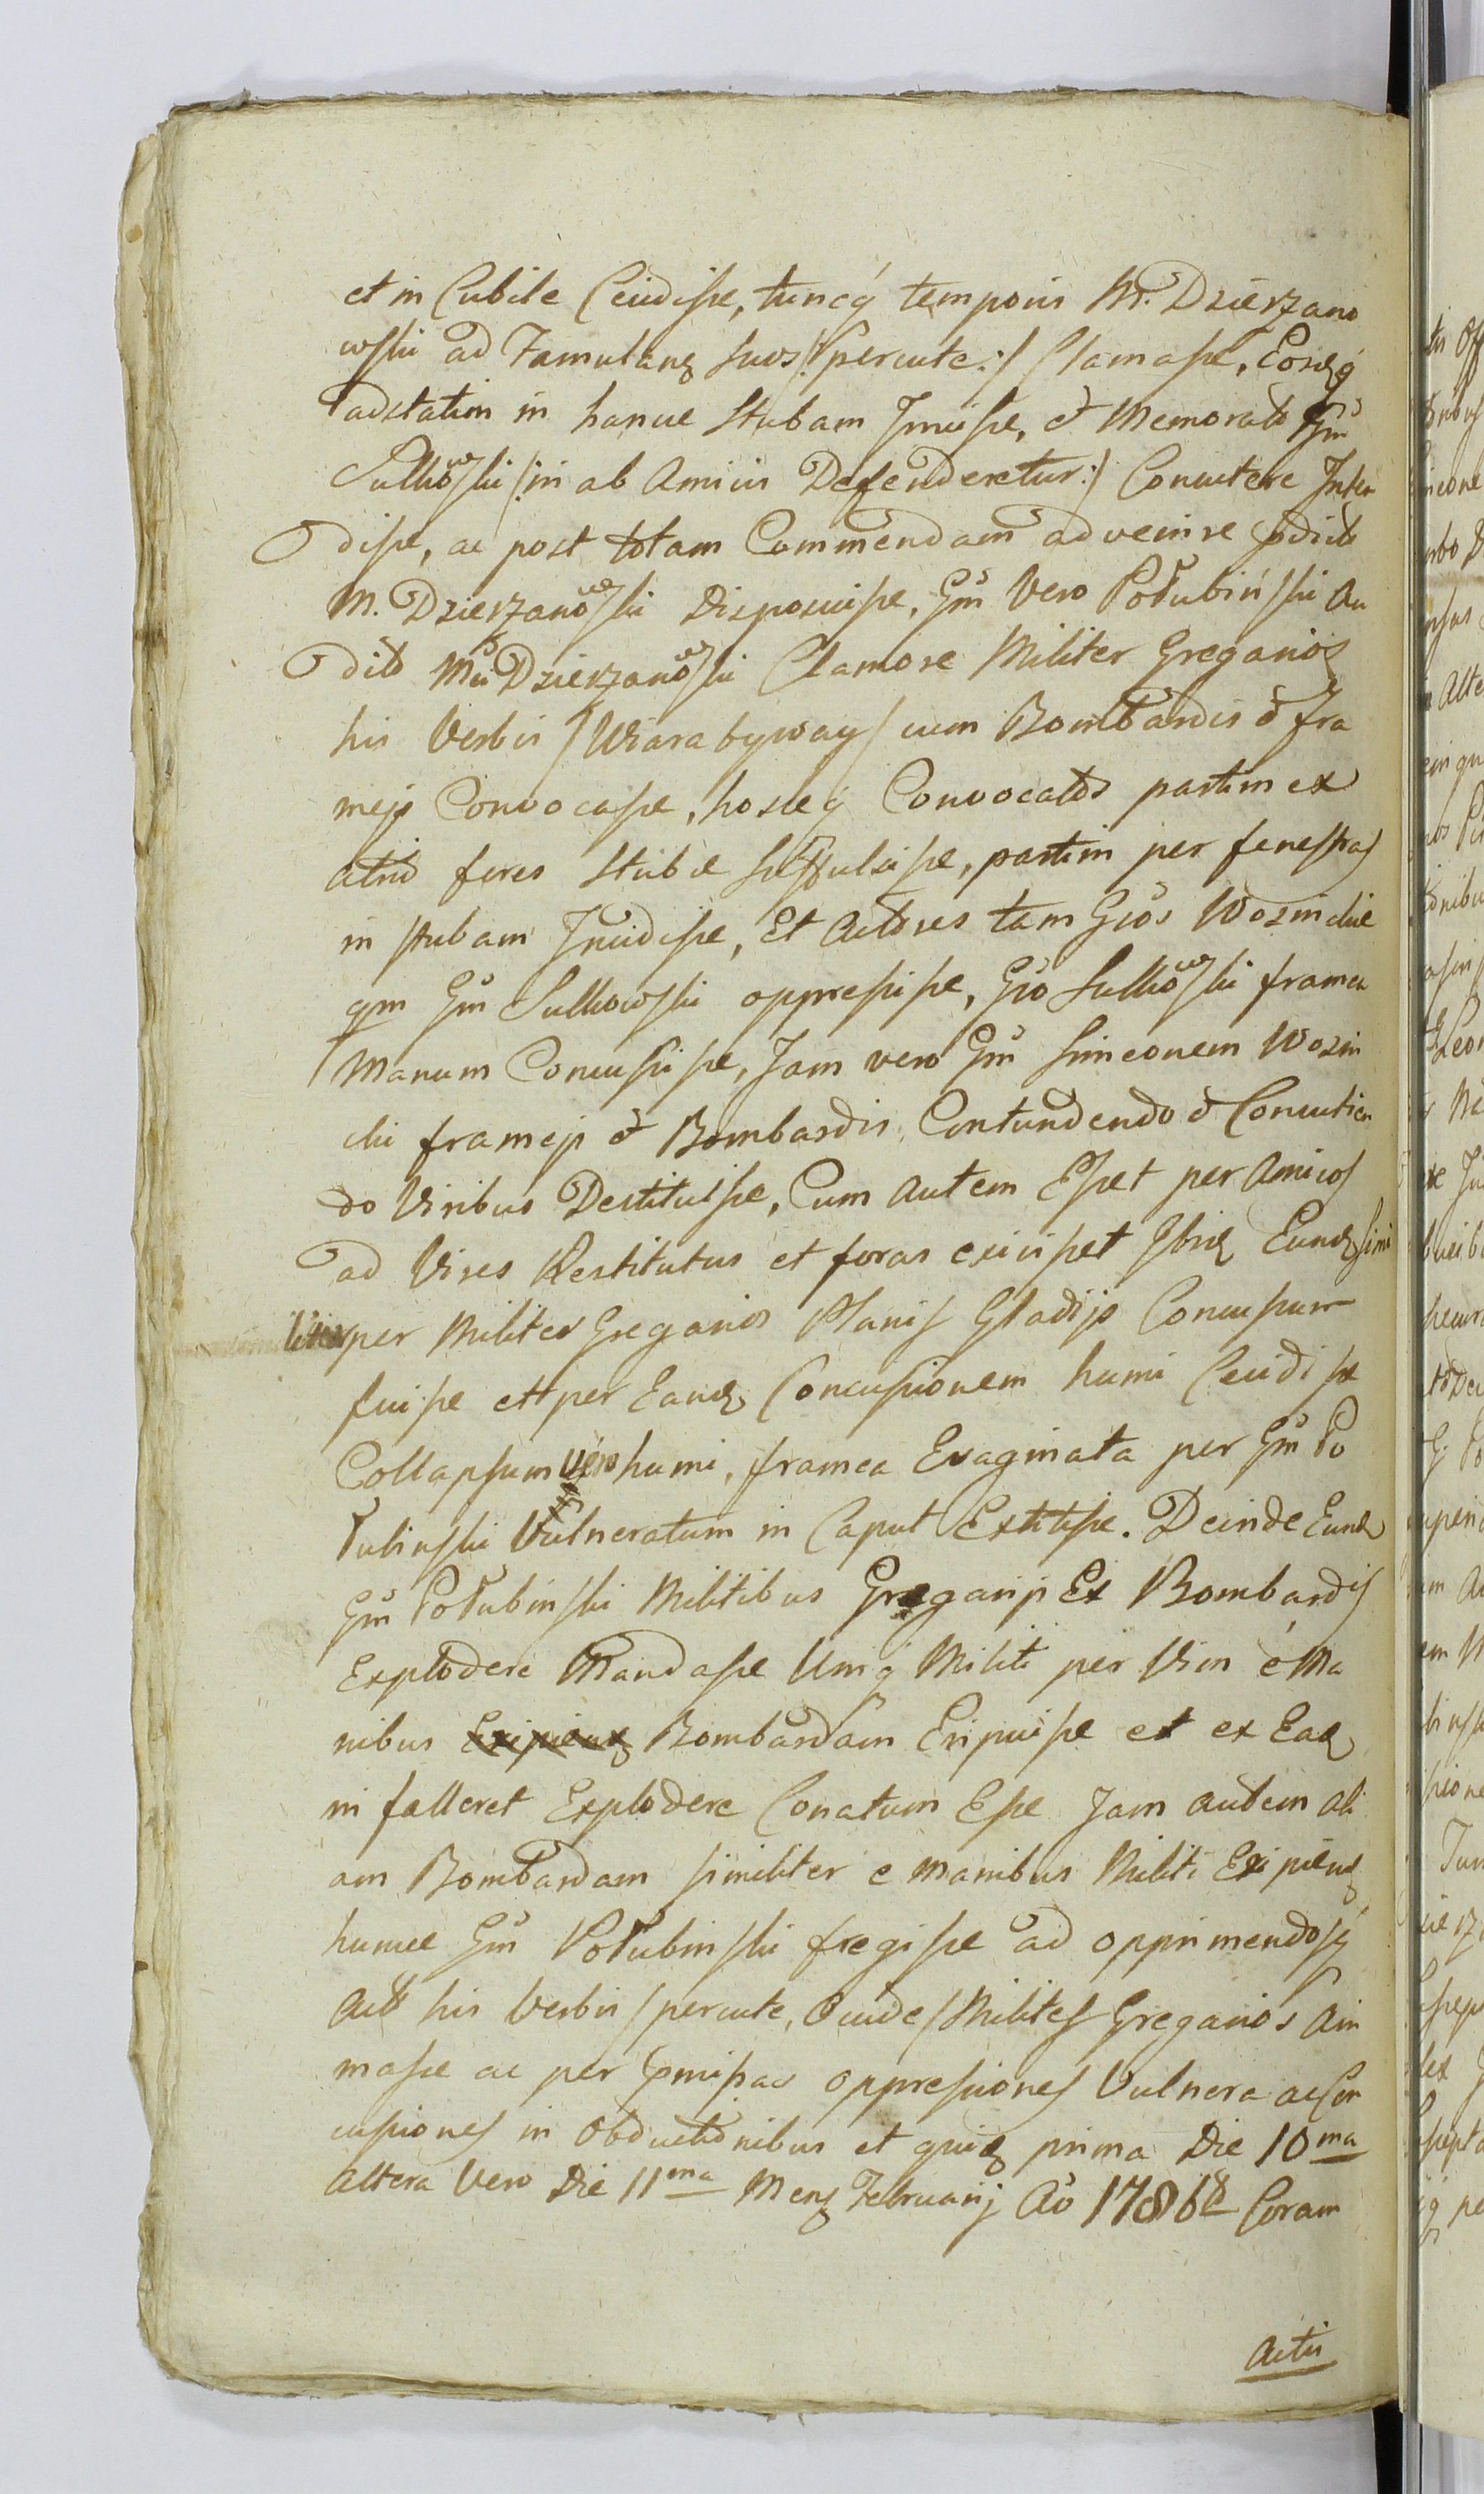 et in Cubile Cecidisse, tuncq́ temporis M. Dzierzano
wski ad Famulang suos /: percute :/ Clamasse, Eosdq́
adstatim in hance Stubam Irruisse, et Memorato Gm̃
Sulkowski /: ni ab Amicis Defenderetur :/ Concutere Inten
disse, ac post totam Commendam advenire
M. Dzierzanowski Disposuisse, Gm̃ Vero Połubiński Au
dito M. Dzierzanowski Clamore Milites Gregarios
his Verbis / Wiara bywaÿ / cum Bombardis et fra
meis Convocasse, hosceq́ Convocatos partim ex
atrio fores Stubae suffulsisse, partim per fenestras
in stubam Incidisse, Et Actores tam Gños Wozinckie
qm Gm̃ Sulkowski oppressisse, Gño Sulkowski framea
Manum Concussisse, Jam vero Gm̃ Simeonem Wozin
cki frameis et Bombardis Contundendo et Concutien
do Viribus Destituisse, Cum autem Esset per Amicos
ad Vires Restitutus et foras exivisset Ibid Eund simi
liter per Milites Gregarios Planis Gladijs Concussum
fuisse et per Eand Concussionem humi Cecidisse
Collapsum vero humi, framea Evaginata per Gm̃ Po
łubinski Vulneratum in Caput Extitisse. Deinde Eund
Gm̃ Połubinski Militibus Gregarijs Ex Bombardis
Explodere Mandasse Uniq́ Militi per Vim è Ma
nibus Bombardam Eripuisse et ex Ead
ni falleret Explodere Conatum Esse Jam autem ali
am Bombardam similiter e manibus Militi Eripiend
hunce Gm̃ Połubinski fregisse ad opprimendosq́
Act his Verbis / percute, Occide / Milites Gregarios Ani
masse ac per pmissas oppressiones Vulnera ac Con
cussiones in Obductionibus et quid prima Die 10ma
altera Vero Die 11ma Mens Februarij Aõ 1786 Coram
Actis